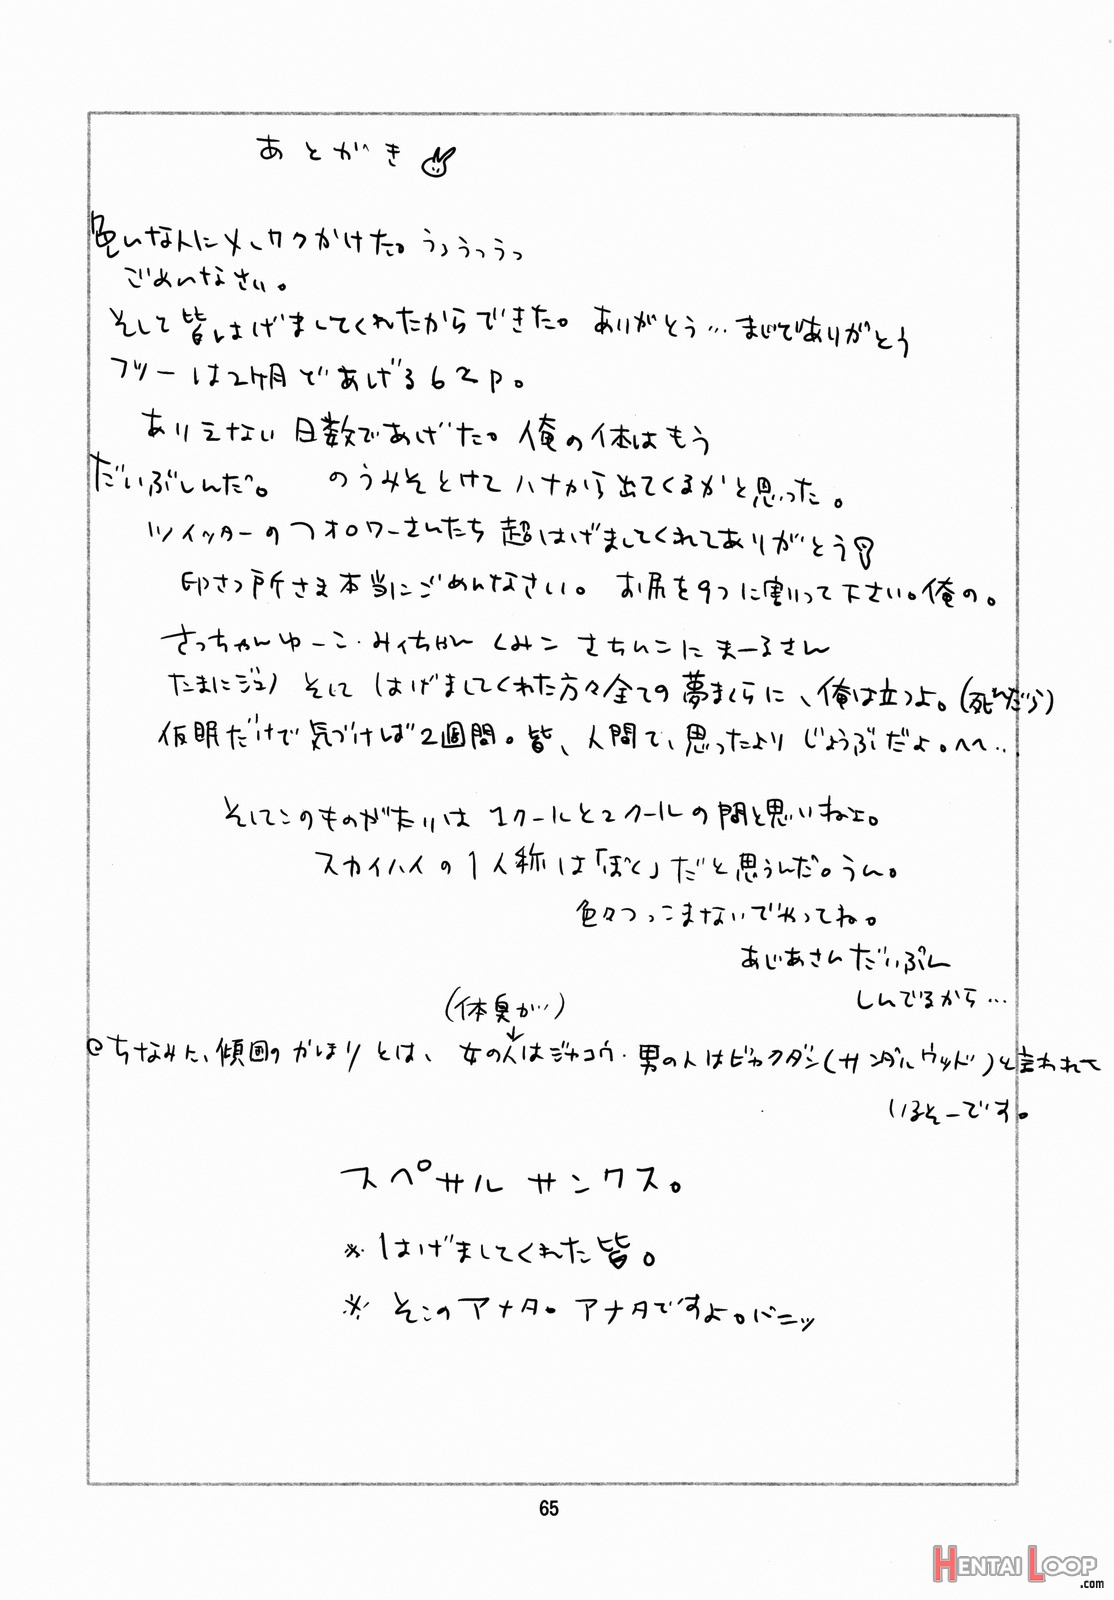 あとがき
色いな人にメーワクかけた。うっうっうっ
ごめいなさい。
そして皆はげましてくれたからできた。ありがとう…まじでありがとう
フツーは2ケ月であげる62P。
ありえない日数であげた。俺の体はもう
だいぶしんだ。 のうみそとけてハナから出てくるかと思った。
ツイッターのフォロワーさんたち超はげましてくれてありがとう
印さつ所さま本当にごめんなさい。お尻を9つに割って下さい。俺の。
さっちゃんゆーこ・みぃちゃん くみこ さちいこに まーるさん
たまにジュノ そして はげましてくれた方々全ての夢まくらに、俺は立つよ。(死んだら)
仮眠だけで気づけば2週間。皆、人間て、思ったより じょうぶだよ。へへ…
そしてこのものがたりは 1クールと2クールの間と思いねぇ。
スカイハイの1人称は「ぼく」だと思うんだ。うん。
色々つっこまないでやってね。
あじあさんだいぶん
しんでるから…
(体臭が…)
ちなみに、傾国のかほりとは、女の人はジャコウ・男の人はビャクダン(サンダルウッド)と言われて
いるそーです。
スペサルサンクス。
※はげましてくれた皆。
※そこのアナタ。アナタですよ。バニッ
65
HENTAI LOOP
.com